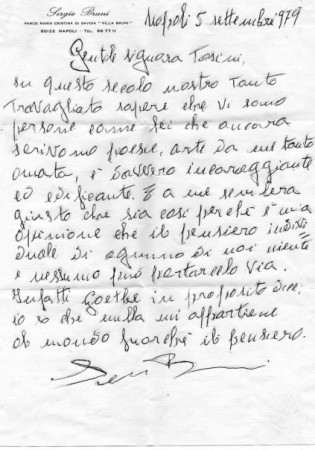 Sergio Bruni
PARCO MARIA CRISTINA DI SAVOIA "VILLA BRUNI"
80122 NAPOLI - Tel. 68 77 11
Napoli 5 settembre 979
Gentile signora Tosini,
su questo secolo nostro tanto
travagliato sapere che vi sono
persone come lei che ancora
scrivono poesie, arte da me tanto
amata, è davvero incoraggiante
ed edificante. E a me sembra
giusto che sia così perché è mia
opinione che il pensiero indivi
duale di ognuno di noi niente
e nessuno può portarcelo via.
Infatti Goethe in proposito dice:
io so che nulla mi appartiene
al mondo fuorché il pensiero.